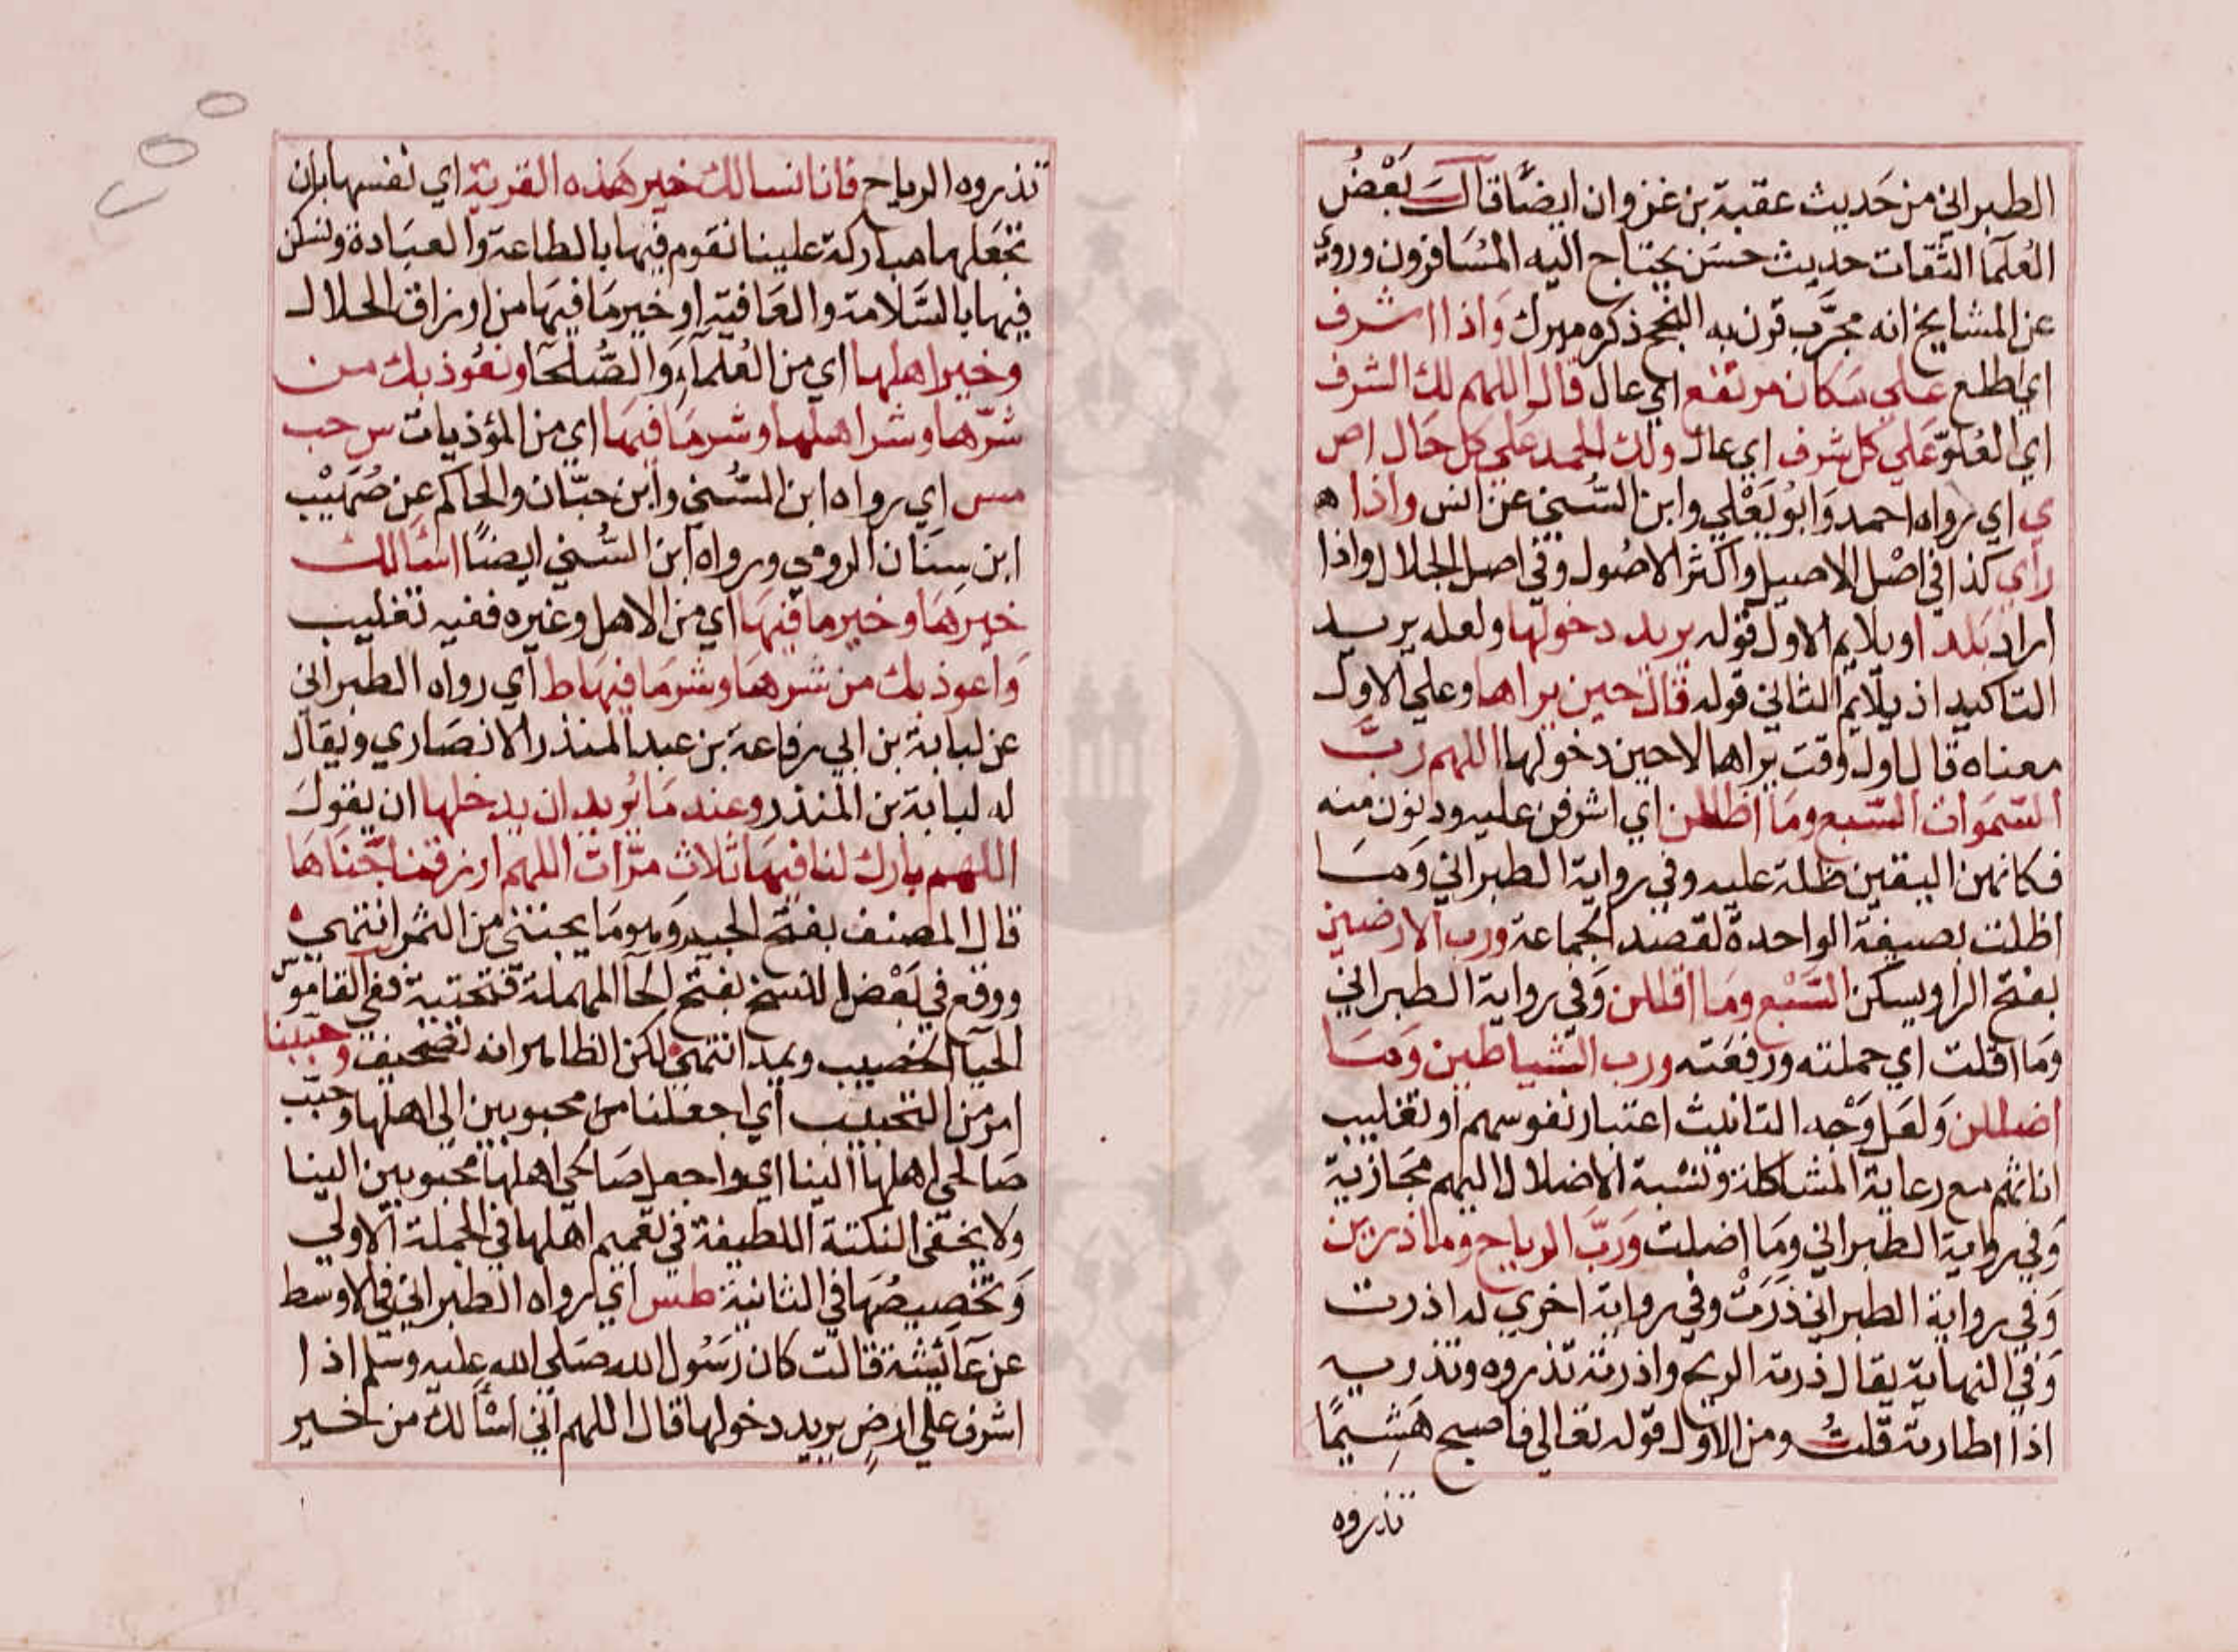 الطبراني من حَديث عقبة بن غزوان ايضًا قالَ بَعْضُ
العُلمآ الثقات حديث حسَن يحتاج اليه المُسَافرون وروي
عن المشايخ انه مجرَّب قرن به النجح ذكره ميرك وَاذا اشرف
اي اطلع علي مكان مرتفع اي عال قال اللهم لك الشرف
اي العُلوّ عَلي كل شرف اي عال ولك الحمد عَلي كل حَال اص
ي اي رواه احمد وَابو يَعْلي وابن السُّني عن انس واذا ه
راي كذا في اصْل الاصيل واكثر الاصُول وفي اصل الجلال واذا
اراد بَلدا ويلايم الاول قوله يريد دخولها ولعله يريد
التاكيد اذ يلايم الثاني قوله قال حين يراها وعلي الاول
معناه قال اول وقت يراها لا حين دخولها اللهم ربَّ
السَّمَوات السَّبع ومَا اظللن اي اشرفن عليه ودنون منه
فكانهن البقين ظلة عليه وفي رواية الطبراني وَمَا
اظلت بصيغة الواحدة لقصد الجماعة ورب الارضين
بفتح الرا ويسكن السَّبْع ومَا اقللن وَفي رواية الطبراني
وَمَا اقلت اي حملته ورفعَته ورب الشياطين وَمَا
اضللن وَلعَل وَجْه التانيث اعتبار نفوسهم او تغليب
اناثهم مع رعاية المشاكلة ونسْبة الاضلال اليهم مجَازية
وَفي رواية الطبراني ومَا اضلت وَربَّ الرياح وما ذرين
وَفي رواية الطبراني ذرَتْ وفي رواية اخري له اذرت
وَفي النهاية يقال ذرته الريح واذرته تذروه وتذريه
اذا اطارته قلتُ ومن الاول قوله تعالي فاصبح هَشِيمًا
تذروه
تذروه الرياح فانا نسالك خير هَذه القرية اي نفسها بان
تجعَلها مباركة علينا نقوم فيها بالطاعة والعبَادة ونسكن
فيها بالسَّلامة والعَافية او خير مَا فيهَا من ارزاق الحلال
وخير اهلها اي من العُلمآء وَالصُّلحَا ونعُوذ بك من
شرّها وشر اهلها وشر مَا فيهَا اي من المؤذيات س حب
مس اي رواه ابن السُّني وابن حبّان والحاكم عن صُهَيْب
ابن سِنَان الرومي ورواه ابن السُّني ايضًا اسَالك
خيرهَا وخير ما فيهَا اي من الاهل وغيره ففيه تغليب
وَاعوذ بك من شرهَا وشر مَا فيهَا ط اي رواه الطبراني
عن لبابة بن ابي رفاعة بن عبد المنذر الانصَاري ويقال
له لبابة بن المنذر وعند مَا يُريد ان يدخلها ان يقولَ
اللهم بارك لنا فيهَا ثلاث مرّات اللهم ارزقنا جَنَاهَا
قال المصنف بفتح الجيم وَهو مَا يجتنى من الثمر انتهي
ووقع في بَعْض النسخ بفتح الحآ المهملة فتحتية ففي القاموس
الحيَا الخصيب ويمد انتهي لكن الظاهر انه تصحيف وحببنا
امر من التحبيب اي اجعلنا من محبوبين الي اهلها وحبّب
صَالحي اهلها الينا اي واجعل صَالحي اهلها محبوبين الينا
ولا يخفى النكتة اللطيفة في تعميم اهلها في الجملة الاولي
وَتخصيصُهَا في الثانية طس اي رواه الطبراني في الاوسط
عن عَائشة قالت كان رَسُول الله صَلي الله عليه وسلم اذا
اشرف علي ارضٍ يريد دخولها قال اللهم اني اسْالك من خير